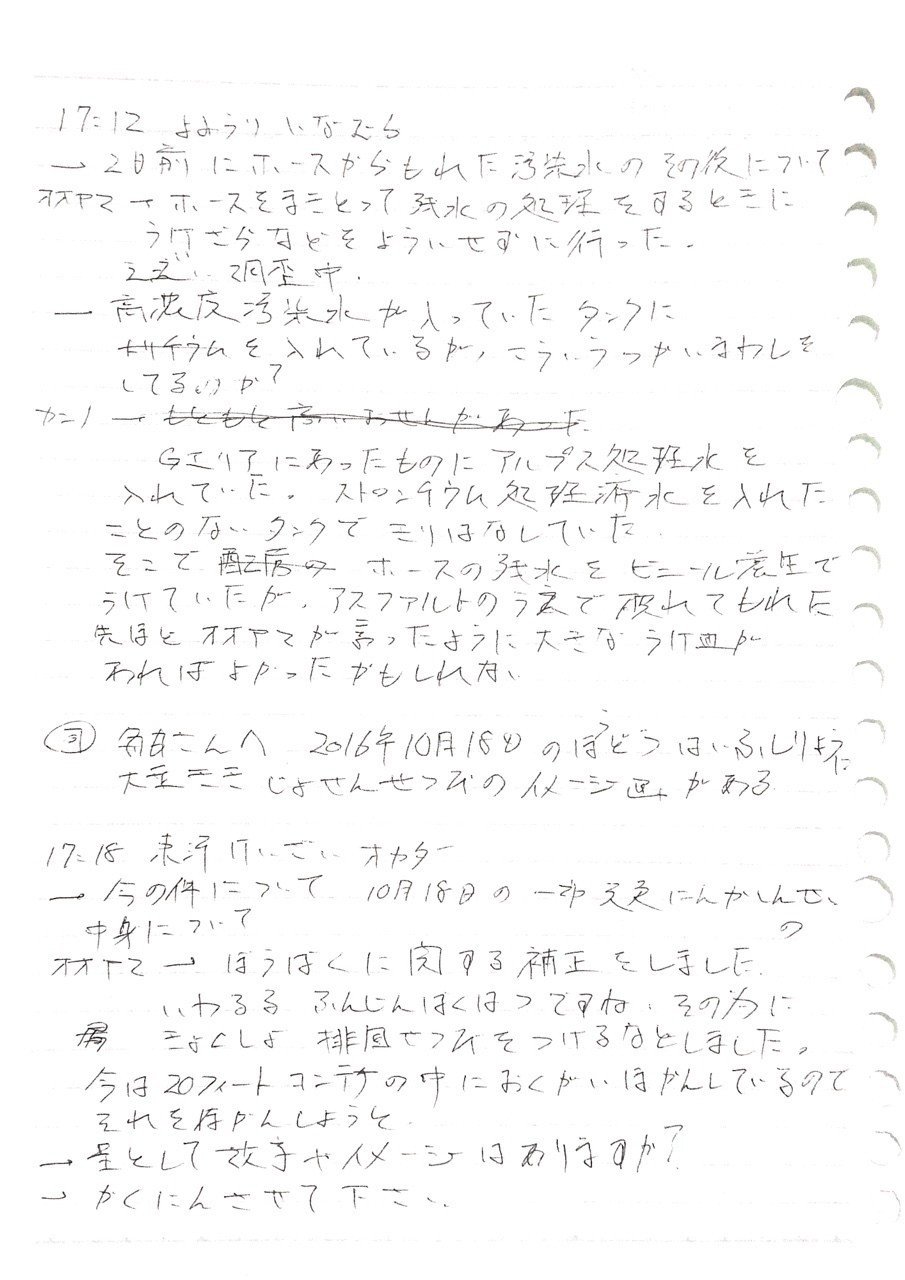 17:12 よみうり いなむら
→ 2日前にホースからもれた汚染水のその後について
オオヤマ → ホースをまきとって残水の処理をするときに
うけざらなどをよういせずに行った。
調査中.
→ 高濃度汚染水が入っていたタンクに
トリチウムを入れているが、こういうつかいまわしを
してるのか?
カニノ → もともと高いおせんがあった
Gエリアにあったものにアルプス処理水を
入れていた。ストロンチウム処理済水を入れた
ことのないタンクできりはなしていた.
そこで ホースの残水をビニール養生で
うけていたが、アスファルトのうえで破れてもれた
先ほどオオヤマが言ったように大きなうけ皿が
あればよかったかもしれない
③ さんへ 2016年10月18日のほうどうはいふしりょうに
じょせんせつびのイメージ図がある
17:18 東洋けいざい オカダー
→ 今の件について 10月18日の一部変更にんかしんせいの
中身について
オオヤマ → ぼうばくに関する補正をしました.
いわゆる ふんじんばくはつですね. その為に
きょくしょ排風せつびをつけるなどしました。
今は20フィートコンテナの中におくがいほかんしているので
それをほかんしようと.
→ 量として数字やイメージはありますか?
→ かくにんさせて下さい.